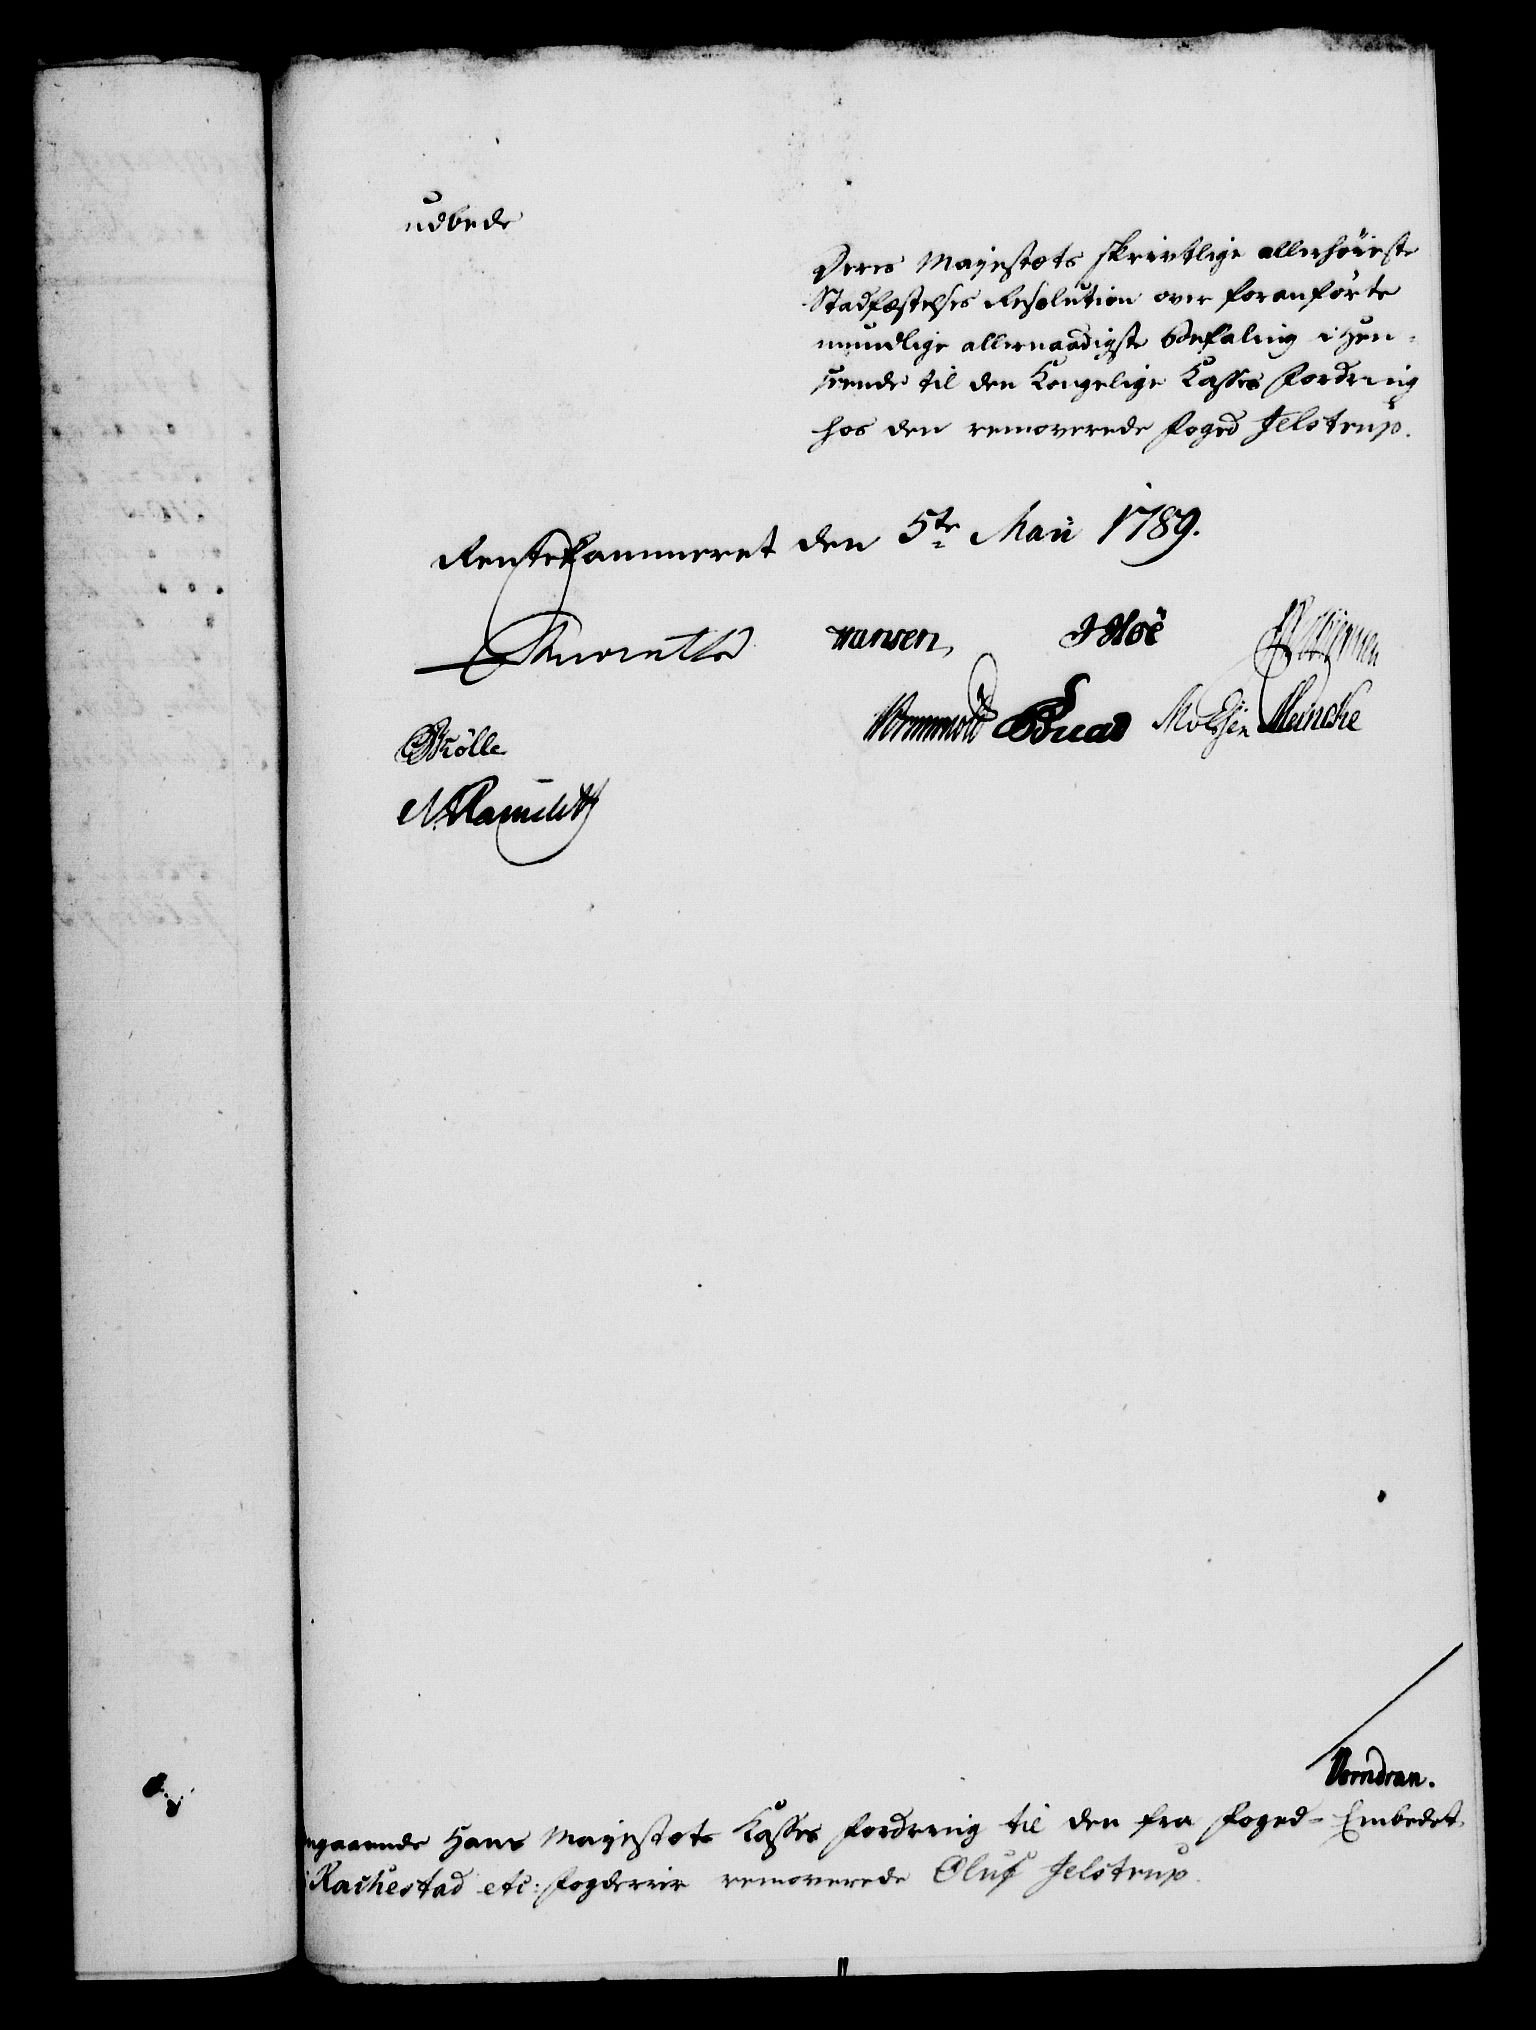 udbede
Deres Majestæts skrivtlige allerhöieste
Stadfæstelses Resolution over foranförte
mundlige allernaadigste Befaling i Hen-
seende til den Kongelige Kasses Fordring
hos den removerede Foged Jelstrup.
Rentekammeret den 5te Maii 1789.
Knuth Hansen JHoë
Wormwold Lucas Mølsjen Meincke
Rölle
N. Ramclett
Vorndran.
ngaaende Hans Majestæts Kasses Fordring til den fra Foged-Embedet
i Rachestad etc: Fogderier removerede Oluf Jelstrup.